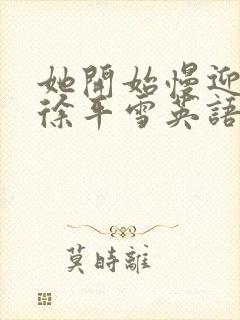 她開始慢迎
徐平雪英語
莫時離